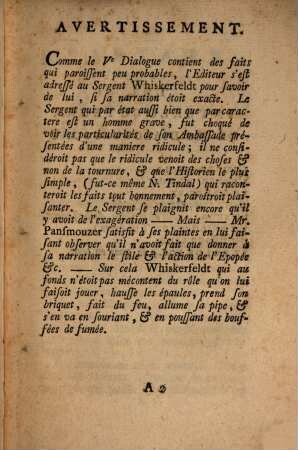 AVERTISSEMENT.
Comme le Vᵉ Dialogue contient des faits
qui paroissent peu probables, l'Editeur s'est
adressé au Sergent Whiskerfeldt pour savoir
de lui, si sa narration étoit exacte. Le
Sergent qui par état aussi bien que par carac-
tere est un homme grave, fut choqué de
voir les particularités de son Ambassade pré-
sentées d'une maniere ridicule; il ne con-
sidéroit pas que le ridicule venoit des choses &
non de la tournure, & que l'Historien le plus
simple, (fut-ce même N. Tindal) qui racon-
teroit les faits tout bonnement, paroîtroit plai-
santer. Le Sergent se plaignit encore qu'il
y avoit de l'exagération — Mais — Mr.
Pansmouzer satisfit à ses plaintes en lui fai-
sant observer qu'il n'avoit fait que donner à
sa narration le stile & l'action de l'Epopée
&c. — Sur cela Whiskerfeldt qui au
fonds n'étoit pas mécontent du rôle qu'on lui
faisoit jouer, hausse les épaules, prend son
briquet, fait du feu, allume sa pipe, &
s'en va en souriant, & en poussant des bouf-
fées de fumée.
A 2